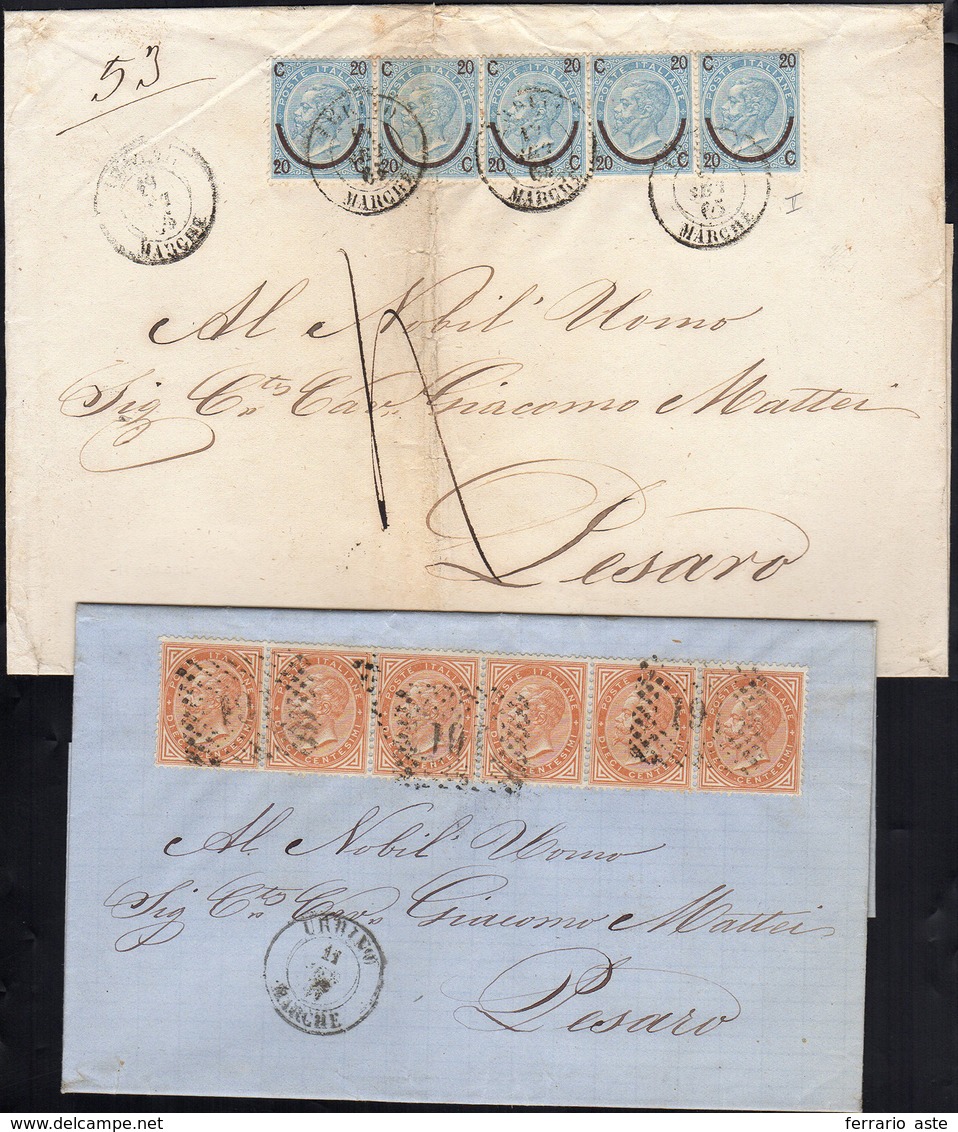 53
C 20 C 20 C 20 C 20 C 20
POSTE ITALIANE POSTE ITALIANE POSTE ITALIANE POSTE ITALIANE POSTE ITALIANE
20 C 20 C 20 C 20 C 20 C
MARCHE MARCHE MARCHE MARCHE
II
Al Nobil' Uomo
Sig Cte Cav. Giacomo Mattei
Pesaro
POSTE ITALIANE POSTE ITALIANE POSTE ITALIANE POSTE ITALIANE POSTE ITALIANE POSTE ITALIANE
DIECI CENTESIMI DIECI CENTESIMI DIECI CENTESIMI DIECI CENTESIMI DIECI CENTESIMI DIECI CENTESIMI
Al Nobil' Uomo
Sig Cte Cav. Giacomo Mattei
URBINO
11
MARCHE
Pesaro
ferrario aste